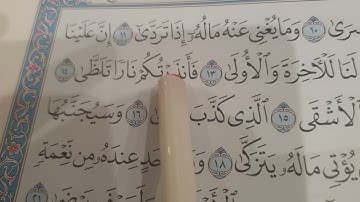 سرى ١٠ وَمَا يُغْنِى عَنْهُ مَالُهُۥٓ إِذَا تَرَدَّىٰٓ ١١ إِنَّ عَلَيْنَا
لنا لَلْءَاخِرَةَ وَٱلْأُولَىٰ ١٣ فَأَنذَرْتُكُمْ نَارًا تَلَظَّىٰ ١٤
ٱلْأَشْقَى ١٥ ٱلَّذِى كَذَّبَ ١٦ وَسَيُجَنَّبُهَا
يُؤْتِى مَالَهُۥ يَتَزَكَّىٰ ١٨ حَدٍ عِندَهُۥ مِن نِّعْمَةٍ